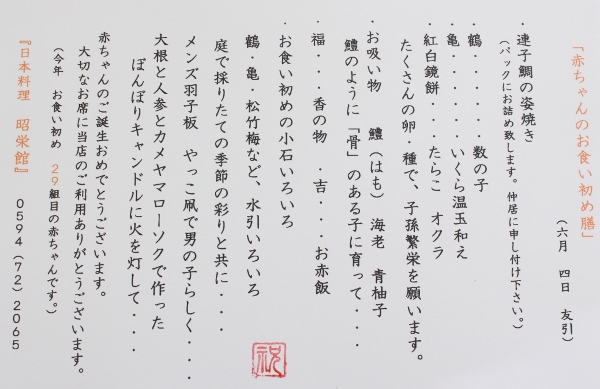 「赤ちゃんのお食い初め膳」
(六月 四日 友引)
・連子鯛の姿焼き
(パックにお詰め致します。仲居に申し付け下さい。)
・鶴・・・・・・数の子
亀・・・・・・いくら温玉和え
紅白鏡餅・・・たらこ オクラ
たくさんの卵・種で、子孫繁栄を願います。
・お吸い物 鱧(はも) 海老 青柚子
鱧のように「骨」のある子に育って・・・・
・福・・・香の物 ・吉・・・お赤飯
・お食い初めの小石いろいろ
鶴・亀・松竹梅など、水引いろいろ
庭で採りたての季節の彩りと共に・・・
メンズ羽子板 やっこ凧で男の子らしく・・・・
大根と人参とカメヤマローソクで作った
ぼんぼりキャンドルに火を灯して・・・・
赤ちゃんのご誕生おめでとうございます。
大切なお席に当店のご利用ありがとうございます。
(今年 お食い初め 29組目の赤ちゃんです。)
『日本料理 昭栄館』 0594(72)2065
祝